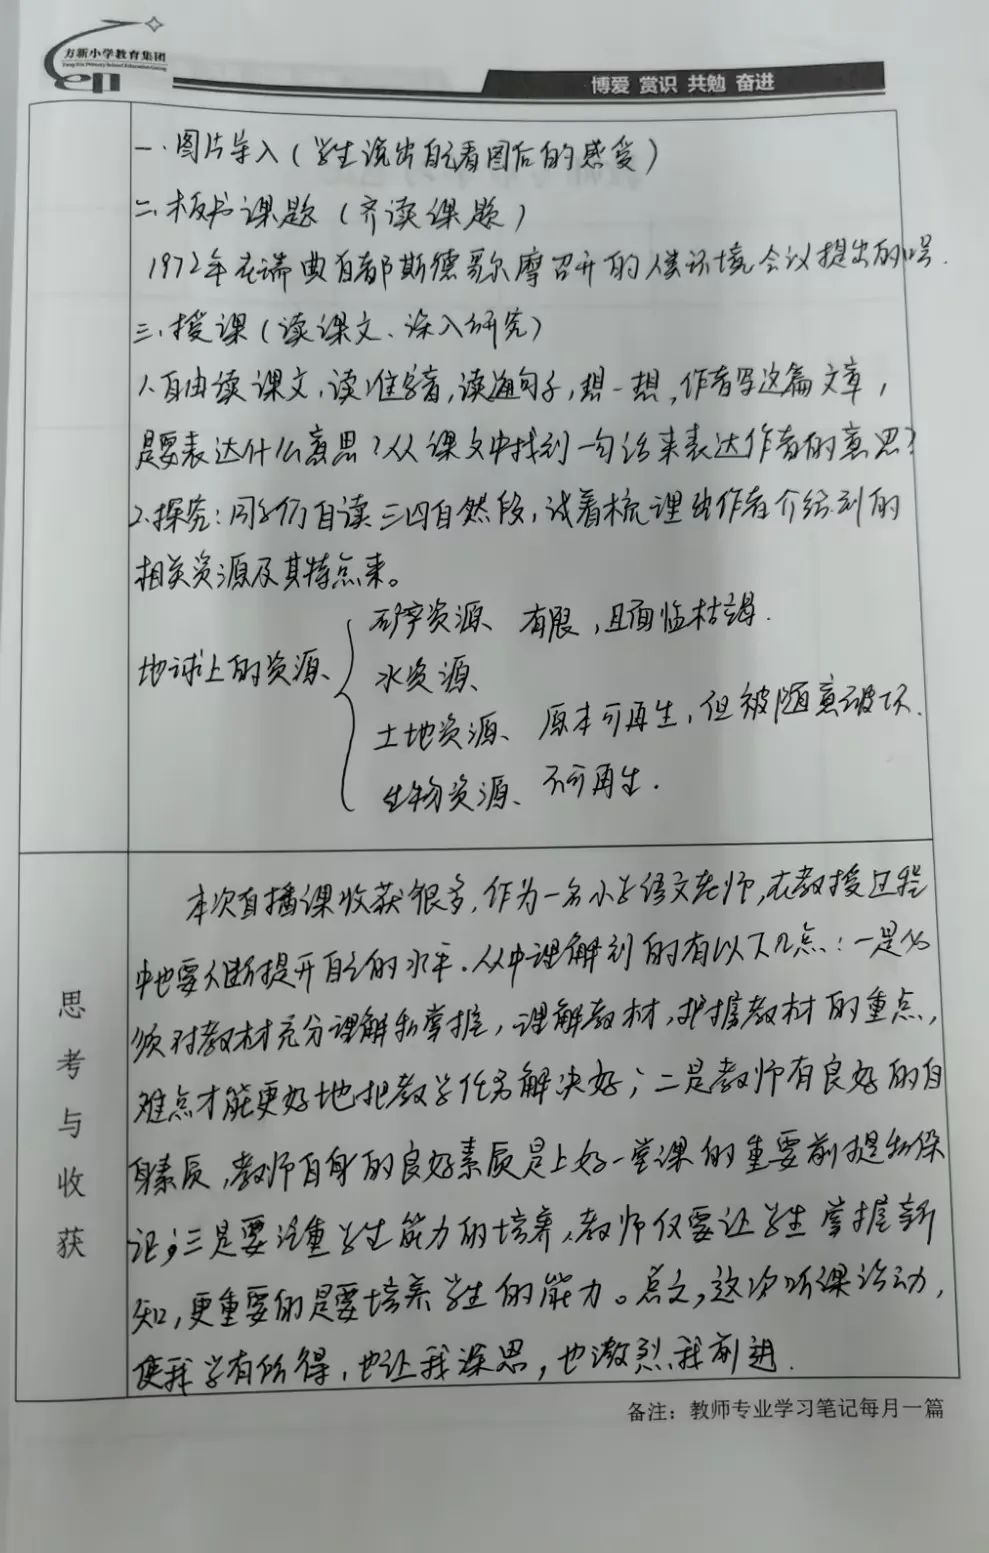 方新小学教育集团
Fang Xin Primary School Education Group
博爱 赏识 共勉 奋进
一、图片导入(学生说出自己看图后的感受)
二、板书课题(齐读课题)
1972年在瑞典首都斯德哥尔摩召开的人类环境会议提出的口号.
三、授课(读课文、深入研究)
1.自由读课文,读准字音,读通句子,想一想,作者写这篇文章,
是要表达什么意思?从课文中找到一句话来表达作者的意思?
2.探究:同学们自读三四自然段,试着梳理出作者介绍到的
相关资源及其特点来。
地球上的资源、
矿产资源、有限,且面临枯竭.
水资源、
土地资源、原本可再生,但被随意破坏.
生物资源、不可再生.
思考与收获
本次直播课收获很多,作为一名小学语文老师,在教授过程
中也要不断提升自己的水平.从中理解到的有以下几点:一是必
须对教材充分理解和掌握,理解教材,把握教材的重点,
难点才能更好地把教学任务解决好;二是教师有良好的自
身素质,教师自身的良好素质是上好一堂课的重要前提和保
证;三是要注重学生能力的培养,教师仅要让学生掌握新
知,更重要的是要培养学生的能力。总之,这次听课活动,
使我学有所得,也让我深思,也激烈我前进.
备注:教师专业学习笔记每月一篇